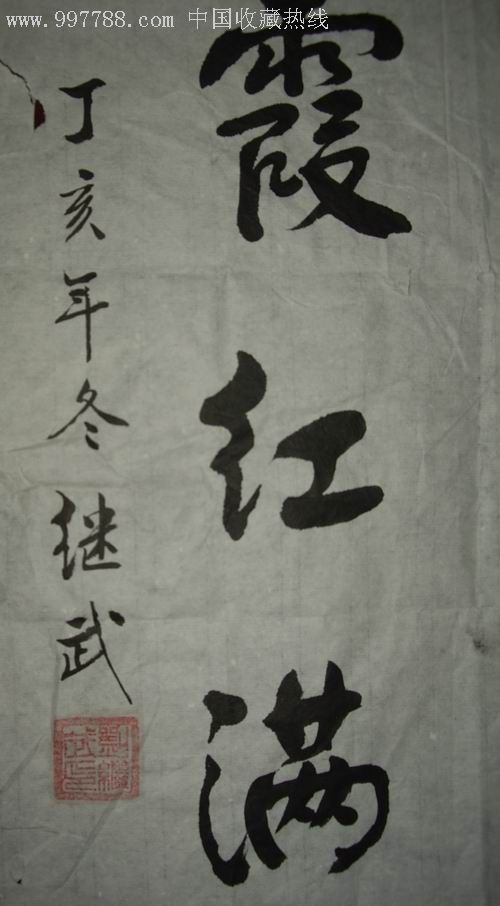 www.997788.com 中国收藏热线
霞红满
丁亥年冬继武